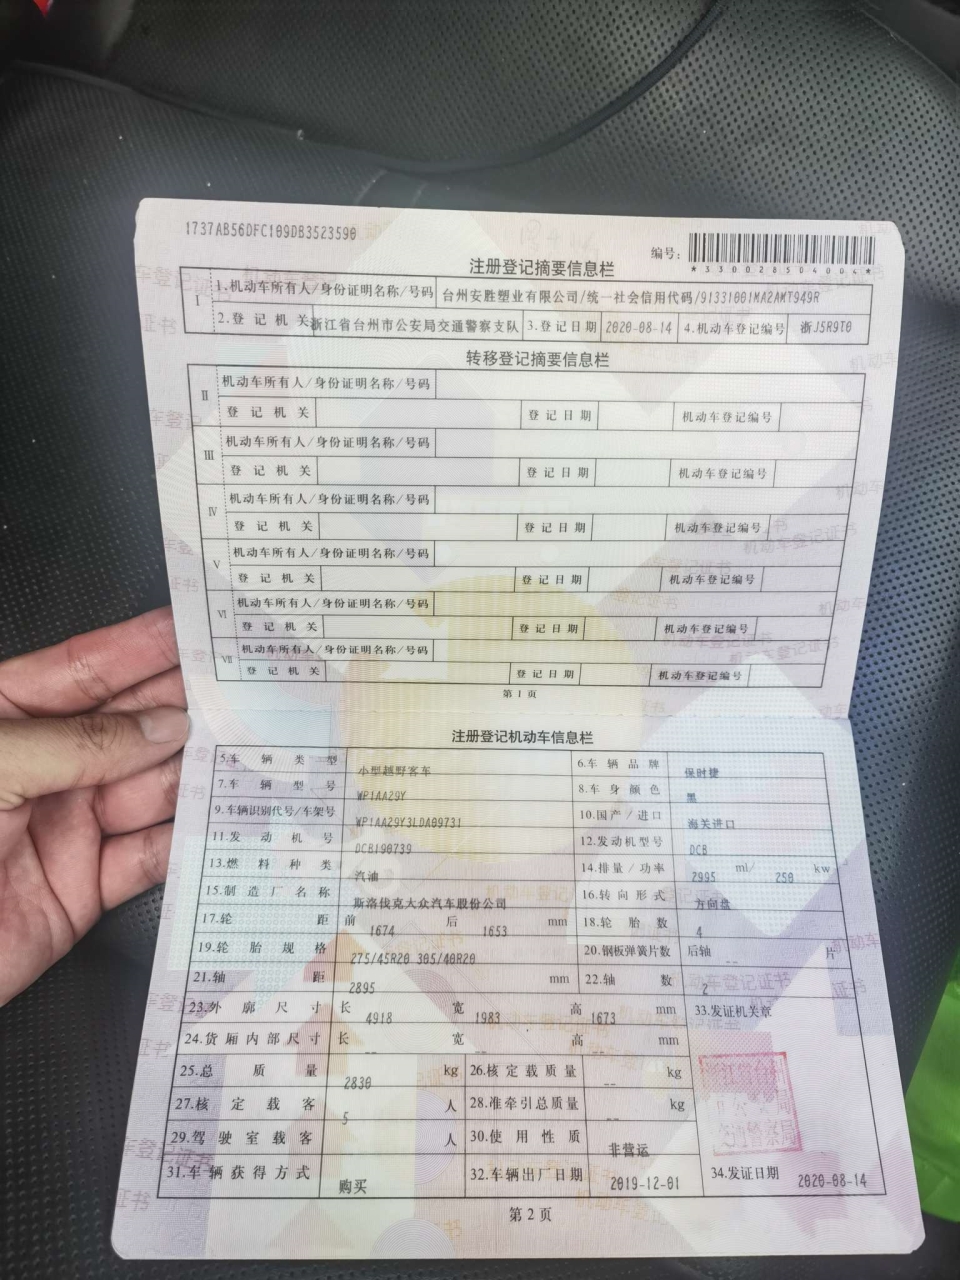 1737AB56DFC109DB3523590
编号:
*330028504004*
注册登记摘要信息栏
I 1.机动车所有人/身份证明名称/号码 台州安胜塑业有限公司/统一社会信用代码/91331001MA2AMT949R
2.登记机关 浙江省台州市公安局交通警察支队 3.登记日期 2020-08-14 4.机动车登记编号 浙J5R9T0
转移登记摘要信息栏
II 机动车所有人/身份证明名称/号码
登记机关 登记日期 机动车登记编号
III 机动车所有人/身份证明名称/号码
登记机关 登记日期 机动车登记编号
IV 机动车所有人/身份证明名称/号码
登记机关 登记日期 机动车登记编号
V 机动车所有人/身份证明名称/号码
登记机关 登记日期 机动车登记编号
VI 机动车所有人/身份证明名称/号码
登记机关 登记日期 机动车登记编号
VII 机动车所有人/身份证明名称/号码
登记机关 登记日期 机动车登记编号
第1页
注册登记机动车信息栏
5.车辆类型 小型越野客车 6.车辆品牌 保时捷
7.车辆型号 WP1AA29Y 8.车身颜色 黑
9.车辆识别代号/车架号 WP1AA29Y3LDA09731 10.国产/进口 海关进口
11.发动机号 DCB190739 12.发动机型号 DCB
13.燃料种类 汽油 14.排量/功率 2995 ml/ 250 kw
15.制造厂名称 斯洛伐克大众汽车股份公司 16.转向形式 方向盘
17.轮距 前 1674 后 1653 mm 18.轮胎数 4
19.轮胎规格 275/45R20 305/40R20 20.钢板弹簧片数 后轴 -- 片
21.轴距 2895 mm 22.轴数 2
23.外廓尺寸 长 4918 宽 1983 高 1673 mm 33.发证机关章
24.货厢内部尺寸 长 -- 宽 -- 高 -- mm
25.总质量 2830 kg 26.核定载质量 -- kg
27.核定载客 5 人 28.准牵引总质量 -- kg
29.驾驶室载客 人 30.使用性质 非营运
31.车辆获得方式 购买 32.车辆出厂日期 2019-12-01 34.发证日期 2020-08-14
第2页